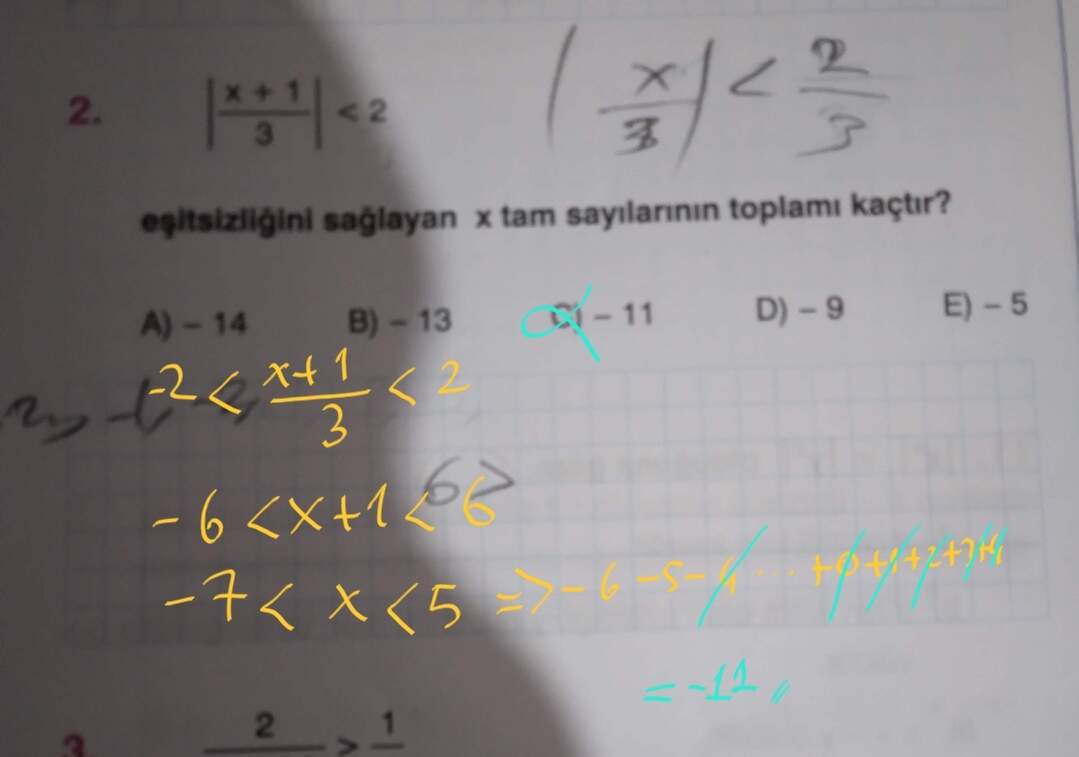 2. |x + 1 / 3| < 2
|x / 3| < 2 / 3
eşitsizliğini sağlayan x tam sayılarının toplamı kaçtır?
A) – 14 B) – 13 C) – 11 D) – 9 E) – 5
-2 < x+1 / 3 < 2
-6 < x+1 < 6
6>
-7 < x < 5 => -6 -5 -4 ... +0 +1 +2 +3 +4
= -11 //
3. 2 > 1